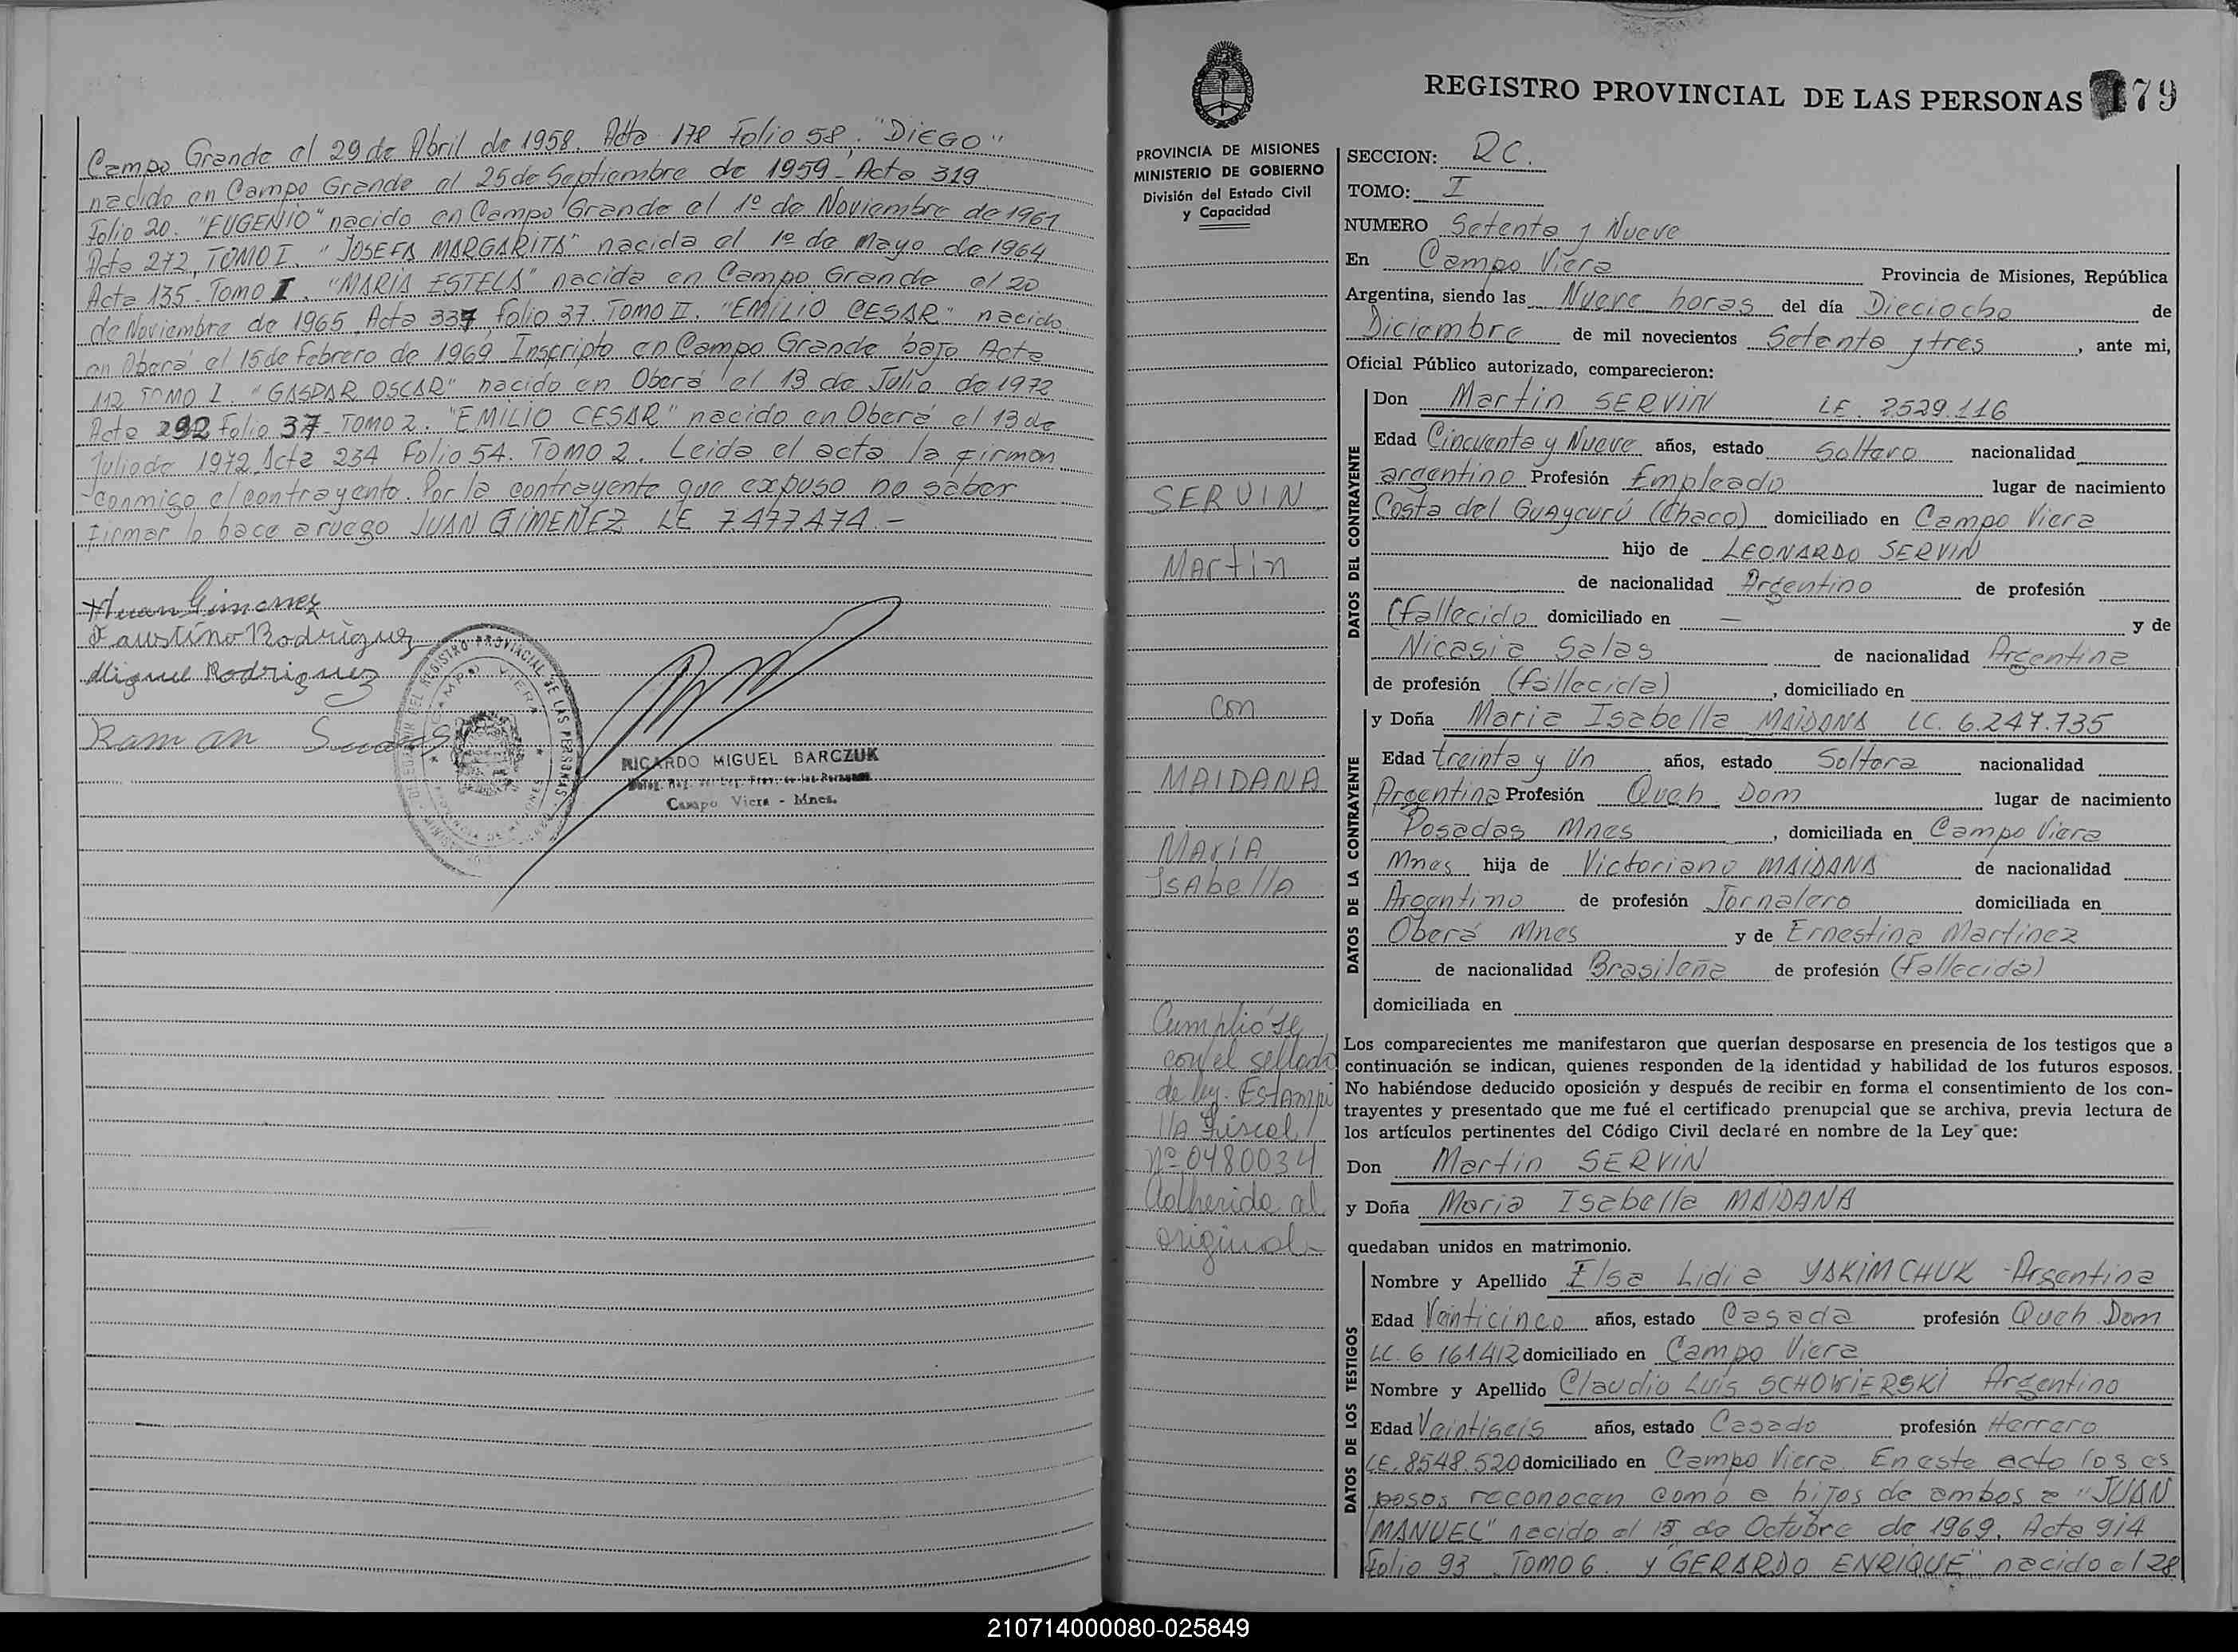 Campo Grande el 29 de Abril de 1958. Acta 178 Folio 58. "DIEGO"
nacido en Campo Grande el 25 de Septiembre de 1959 - Acta 319
Folio 20. "EUGENIO" nacido en Campo Grande el 1º de Noviembre de 1961
Acta 272, TOMO I. "JOSEFA MARGARITA" nacida el 1º de Mayo de 1964
Acta 135 - Tomo I. "MARIA ESTELA" nacida en Campo Grande el 20
de Noviembre de 1965, Acta 337, folio 37. TOMO II. "EMILIO CESAR" nacido
en Oberá el 15 de Febrero de 1969 Inscripto en Campo Grande bajo Acta
112 TOMO I. "GASPAR OSCAR" nacido en Oberá el 13 de Julio de 1972
Acta 292 Folio 37 - TOMO 2. "EMILIO CESAR" nacido en Oberá el 13 de
Julio de 1972 Acta 234 Folio 54. TOMO 2. Leida el acta la firman
conmigo el contrayente. Por la contrayente que expuso no saber
firmar lo hace a ruego JUAN GIMENEZ LE 7.477.474. -
Juan Gimenez
Faustino Rodriguez
Miguel Rodriguez
Ramon
RICARDO MIGUEL BARCZUK
Campo Viera - Mnes.
REGISTRO PROVINCIAL DE LAS PERSONAS 179
PROVINCIA DE MISIONES
MINISTERIO DE GOBIERNO
División del Estado Civil
y Capacidad
SERVIN
Martin
con
MAIDANA
MARIA
ISAbellA
Cumplióse
con el sellado
de ley. EStAmpi
llA Fiscal
Nº 0480034
Adherida al
original
SECCION: RC.
TOMO: I
NUMERO Setenta y Nueve
En Campo Viera Provincia de Misiones, República
Argentina, siendo las Nueve horas del día Dieciocho de
Diciembre de mil novecientos Setenta y tres, ante mi,
Oficial Público autorizado, comparecieron:
DATOS DEL CONTRAYENTE
Don Martin SERVIN LE. 2529.116
Edad Cincuenta y Nueve años, estado Soltero nacionalidad
argentino Profesión Empleado lugar de nacimiento
Costa del GUAycurú (Chaco) domiciliado en Campo Viera
hijo de LEONARDO SERVIN
de nacionalidad Argentino de profesión
(fallecido domiciliado en — y de
Nicasia Salas de nacionalidad Argentina
de profesión (fallecida), domiciliado en
DATOS DE LA CONTRAYENTE
y Doña Maria Isabella MAIDANA LC. 6.247.735
Edad treinta y Un años, estado Soltera nacionalidad
Argentina Profesión Queh Dom lugar de nacimiento
Posadas Mnes, domiciliada en Campo Viera
Mnes hija de Victoriano MAIDANA de nacionalidad
Argentino de profesión Jornalero domiciliada en
Oberá Mnes y de Ernestina Martinez
de nacionalidad Brasileña de profesión (Fallecida)
domiciliada en
Los comparecientes me manifestaron que querían desposarse en presencia de los testigos que a
continuación se indican, quienes responden de la identidad y habilidad de los futuros esposos.
No habiéndose deducido oposición y después de recibir en forma el consentimiento de los con-
trayentes y presentado que me fué el certificado prenupcial que se archiva, previa lectura de
los artículos pertinentes del Código Civil declaré en nombre de la Ley que:
Don Martin SERVIN
y Doña Maria Isabella MAIDANA
quedaban unidos en matrimonio.
DATOS DE LOS TESTIGOS
Nombre y Apellido Elsa Lidia YAKIMCHUK - Argentina
Edad Veinticinco años, estado Casada profesión Queh Dom
LC. 6 161412 domiciliado en Campo Viera
Nombre y Apellido Claudio Luis SCHOWIERSKI Argentino
Edad Veintiseis años, estado Casado profesión Herrero
LE. 8548.520 domiciliado en Campo Viera. En este acto los es
posos reconocen como a hijos de ambos a "JUAN
MANUEL" nacido el 15 de Octubre de 1969. Acta 914
Folio 93 TOMO 6. y "GERARDO ENRIQUE" nacido el 28
210714000080-025849